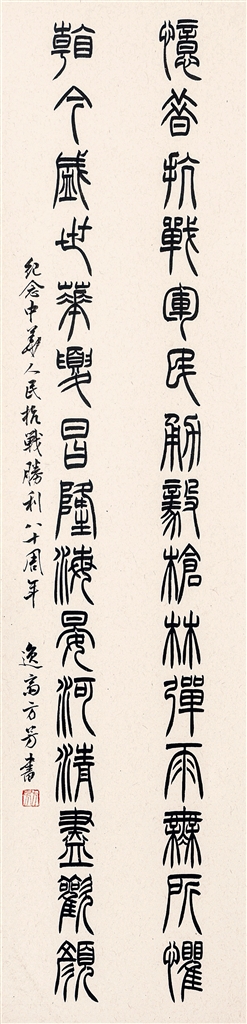 憶昔抗戰軍民勇毅槍林彈雨無所懼
朝今盛世華夏昌隆海晏河清盡歡顏
紀念中華人民抗戰勝利八十周年
逸齋方芳書